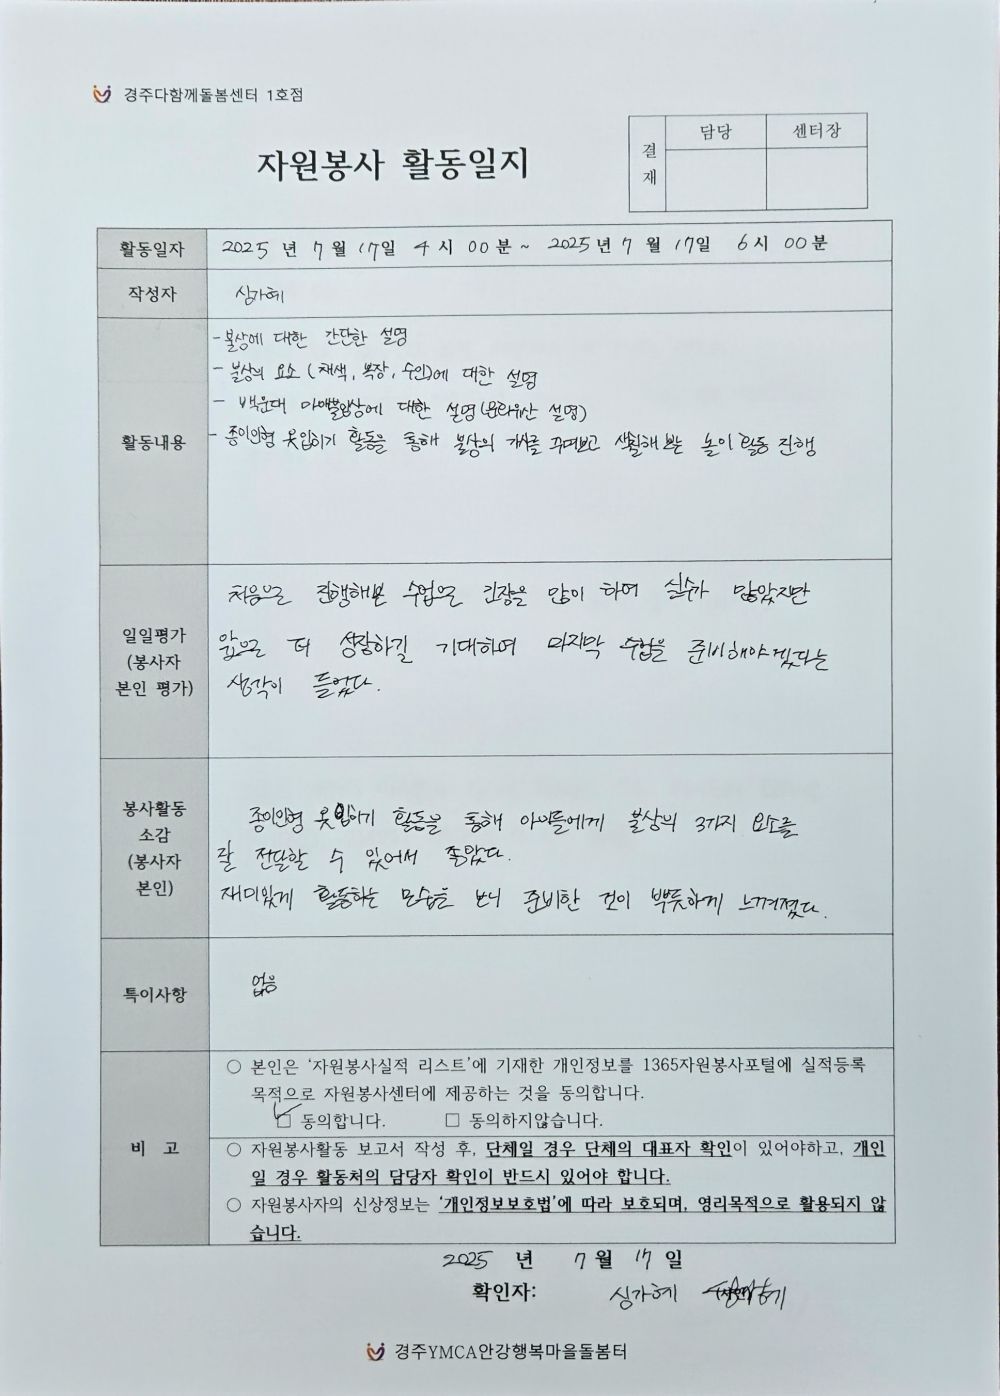 경주다함께돌봄센터 1호점
자원봉사 활동일지
결재 담당 센터장
활동일자 2025 년 7 월 17일 4 시 00 분 ~ 2025 년 7 월 17일 6시 00분
작성자 심가혜
활동내용
- 불상에 대한 간단한 설명
- 불상의 요소 (채색, 복장, 수인)에 대한 설명
- 백운대 마애불입상에 대한 설명(문화유산 설명)
- 종이인형 옷입히기 활동을 통해 불상의 가사를 꾸며보고 색칠해 보는 놀이 활동 진행
일일평가
(봉사자
본인 평가)
처음으로 진행해본 수업으로 긴장을 많이 하여 실수가 많았지만
앞으로 더 성장하길 기대하며 마지막 수업을 준비해야겠다는
생각이 들었다.
봉사활동
소감
(봉사자
본인)
종이인형 옷입히기 활동을 통해 아이들에게 불상의 3가지 요소를
잘 전달할 수 있어서 좋았다.
재미있게 활동하는 모습을 보니 준비한 것이 뿌듯하게 느껴졌다.
특이사항 없음
비 고
○ 본인은 ‘자원봉사실적 리스트’에 기재한 개인정보를 1365자원봉사포털에 실적등록
목적으로 자원봉사센터에 제공하는 것을 동의합니다.
☑ 동의합니다. □ 동의하지않습니다.
○ 자원봉사활동 보고서 작성 후, 단체일 경우 단체의 대표자 확인이 있어야하고, 개인
일 경우 활동처의 담당자 확인이 반드시 있어야 합니다.
○ 자원봉사자의 신상정보는 ‘개인정보보호법’에 따라 보호되며, 영리목적으로 활용되지 않
습니다.
2025 년 7 월 17 일
확인자: 심가혜
경주YMCA안강행복마을돌봄터